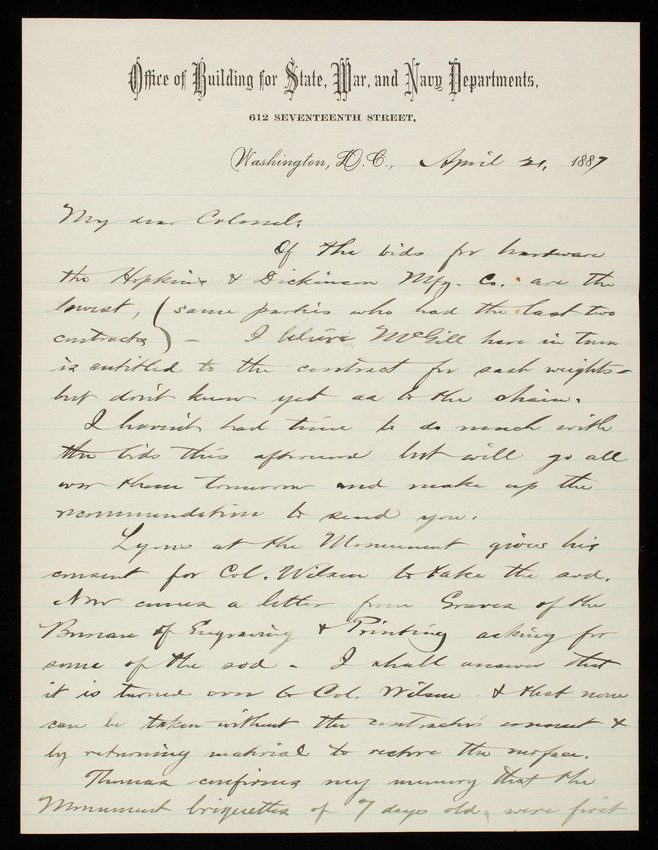 Office of Building for State, War, and Navy Departments,
612 SEVENTEENTH STREET,
Washington, D.C., April 21, 1887
My dear Colonel:
Of the bids for hardware
the Hopkins & Dickinson Mfg. Co. are the
lowest, (same parties who had the last two
contracts) - I believe McGill here in town
is entitled to the contract for sash weights -
but don't know yet as to the chain.
I haven't had time to do much with
the bids this afternoon but will go all
over them tomorrow and make up the
recommendation to send you.
Lyons at the Monument gives his
consent for Col. Wilson to take the sod.
Now comes a letter from Graves of the
Bureau of Engraving & Printing asking for
some of the sod - I shall answer that
it is turned over to Col. Wilson & that none
can be taken without the contractor's consent &
by returning material to restore the surface.
Thomas confirms my memory that the
Monument briquettes of 7 days old, were first